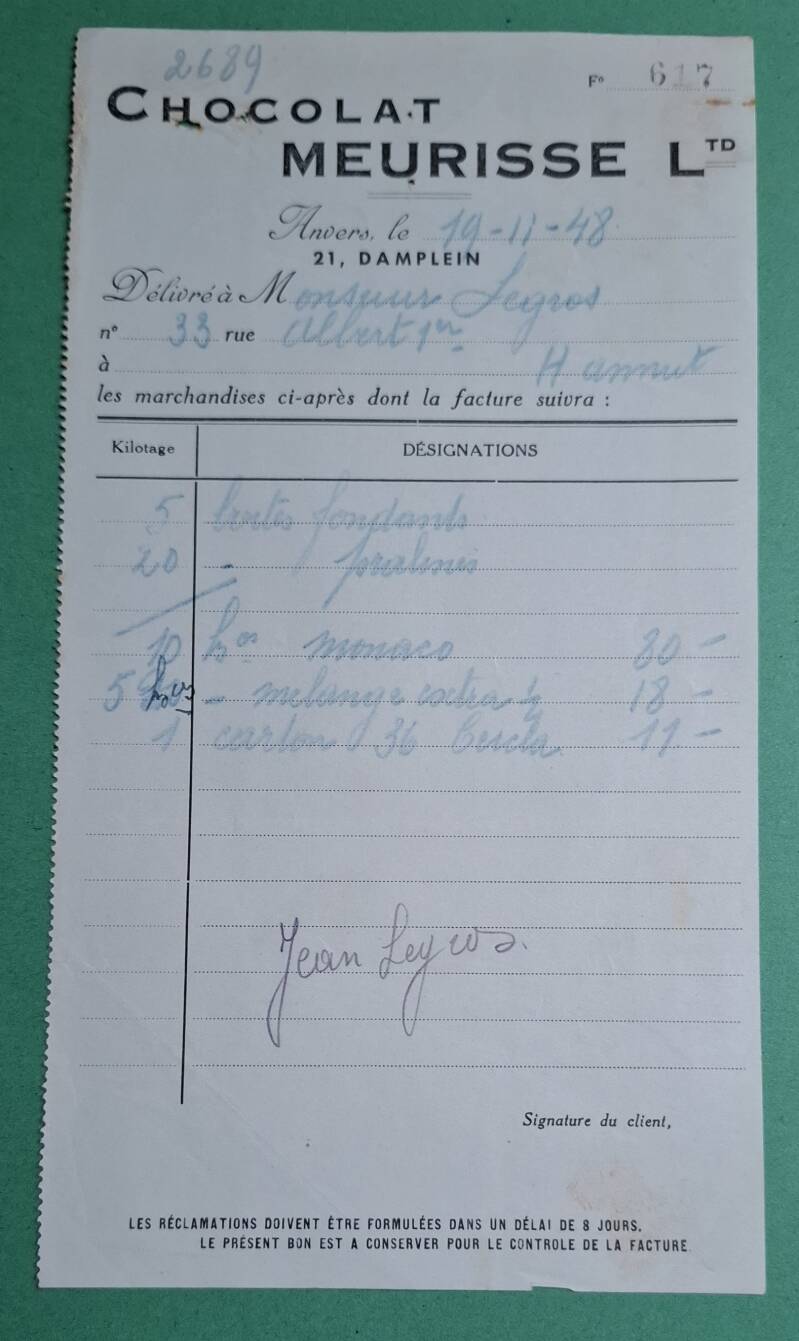 2689
Fº 617
CHOCOLAT
MEURISSE LTD
Anvers, le 19-11-48
21, DAMPLEIN
Délivré à Monsieur Legros
nº 33 rue Albert 1er
à Hannut
les marchandises ci-après dont la facture suivra :
Kilotage DÉSIGNATIONS
5 boîtes fondants
20 - pralines
10 monaco 80 -
5 - melange extra ½ 18 -
1 carton 36 11 -
Jean Legros.
Signature du client,
LES RÉCLAMATIONS DOIVENT ÊTRE FORMULÉES DANS UN DÉLAI DE 8 JOURS.
LE PRÉSENT BON EST A CONSERVER POUR LE CONTROLE DE LA FACTURE